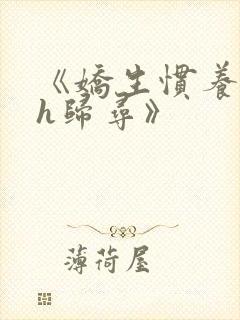 《嬌生慣養
h歸尋》
薄荷屋